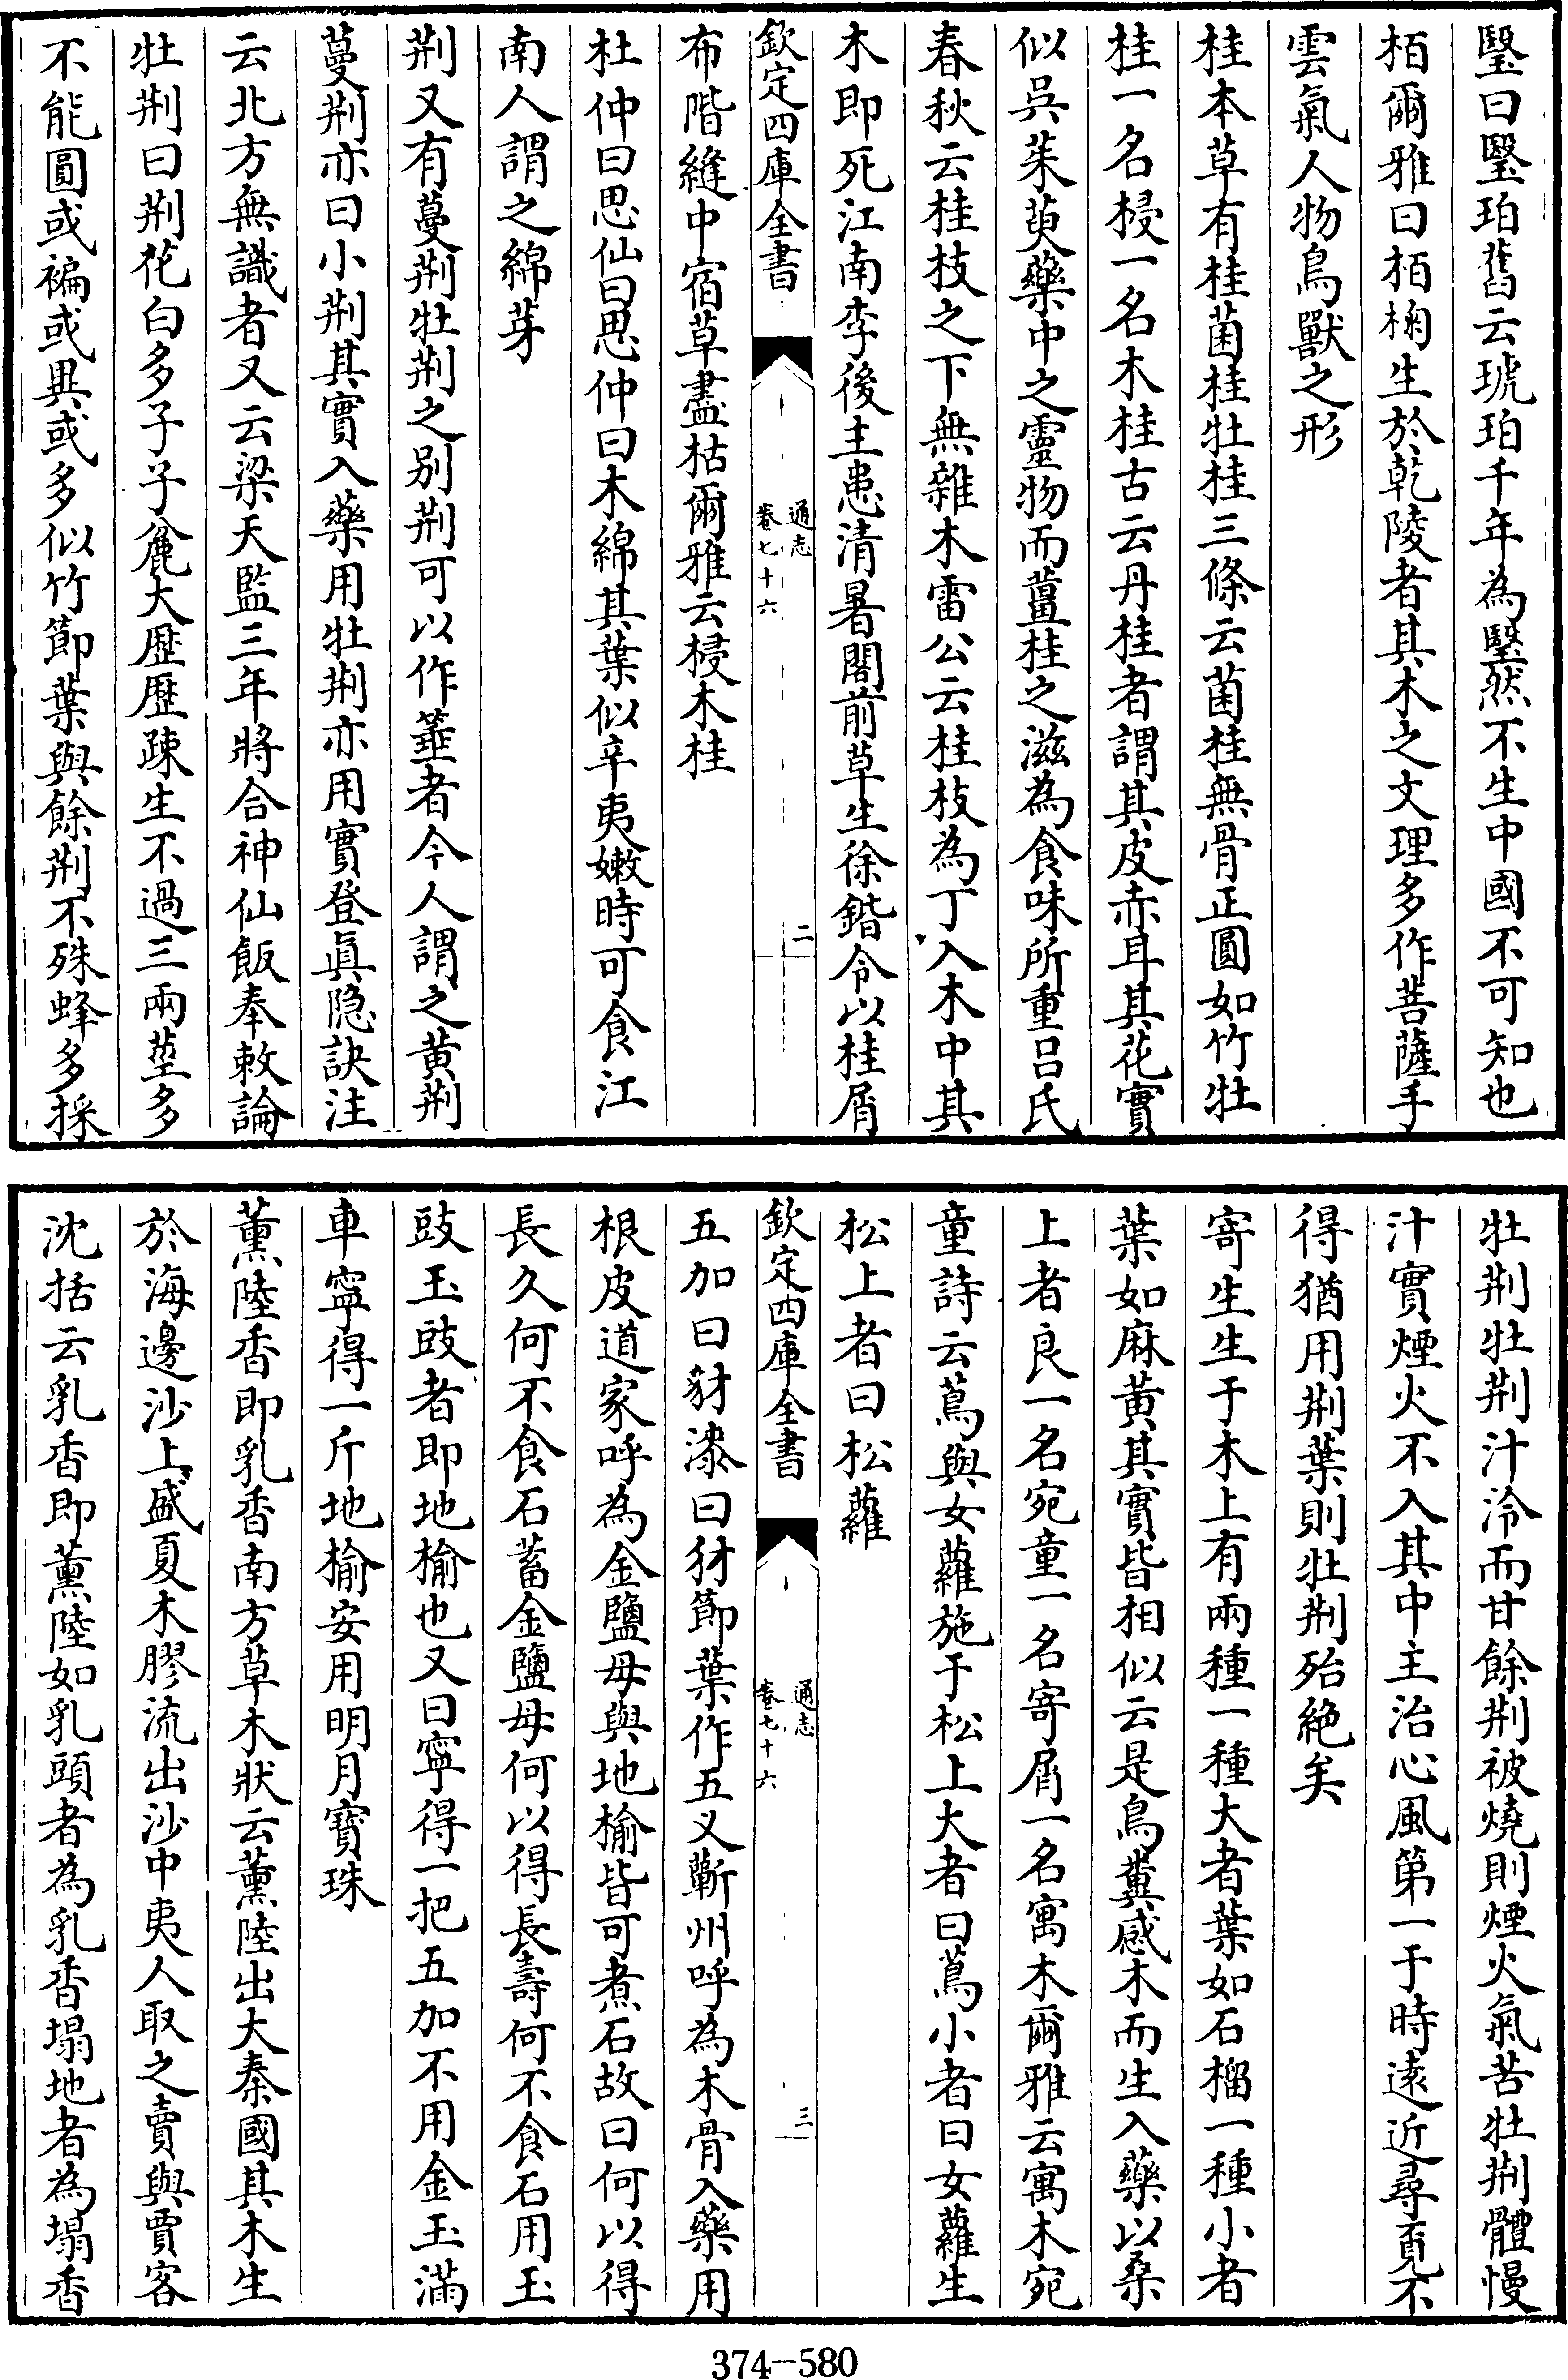 瑿曰瑿珀舊云琥珀千年為瑿然不生中國不可知也
栢爾雅曰栢椈生於乾陵者其木之文理多作菩薩手
雲氣人物鳥獸之形
桂本草有桂菌桂牡桂三條云菌桂無骨正圓如竹牡
桂一名梫一名木桂古云丹桂者謂其皮赤耳其花實
似吳茱萸藥中之靈物而薑桂之滋為食味所重呂氏
春秋云桂枝之下無雜木雷公云桂枝為丁入木中其
木即死江南李後主患清暑閣前草生徐鍇令以桂屑
欽定四庫全書
通志
卷七十六
二
布階縫中宿草盡枯爾雅云梫木桂
杜仲曰思仙曰思仲曰木綿其葉似辛夷嫩時可食江
南人謂之綿芽
荆又有蔓荆牡荆之别荆可以作箠者今人謂之黄荆
蔓荆亦曰小荆其實入藥用牡荆亦用實登眞隐訣注
云北方無識者又云梁天監三年將合神仙飯奉敕論
牡荆曰荆花白多子子麄大歴歴疎生不過三兩莖多
不能圓或褊或異或多似竹節葉與餘荆不殊蜂多採
牡荆牡荆汁冷而甘餘荆被燒則煙火氣苦牡荆體慢
汁實煙火不入其中主治心風第一于時遠近尋覓不
得猶用荆葉則牡荆殆絶矣
寄生生于木上有兩種一種大者葉如石榴一種小者
葉如麻黄其實皆相似云是鳥糞感木而生入藥以桑
上者良一名宛童一名寄屑一名寓木爾雅云寓木宛
童詩云蔦與女蘿施于松上大者曰蔦小者曰女蘿生
松上者曰松蘿
欽定四庫全書
通志
卷七十六
三
五加曰豺漆曰犲節葉作五义蘄州呼為木骨入藥用
根皮道家呼為金鹽母與地榆皆可煮石故曰何以得
長久何不食石蓄金鹽母何以得長壽何不食石用玉
豉玉豉者即地榆也又曰寧得一把五加不用金玉滿
車寧得一斤地榆安用明月寶珠
薫陸香即乳香南方草木狀云薫陸出大秦國其木生
於海邊沙上盛夏木膠流出沙中夷人取之賣與賈客
沈括云乳香即薫陸如乳頭者為乳香塌地者為塌香
374-580